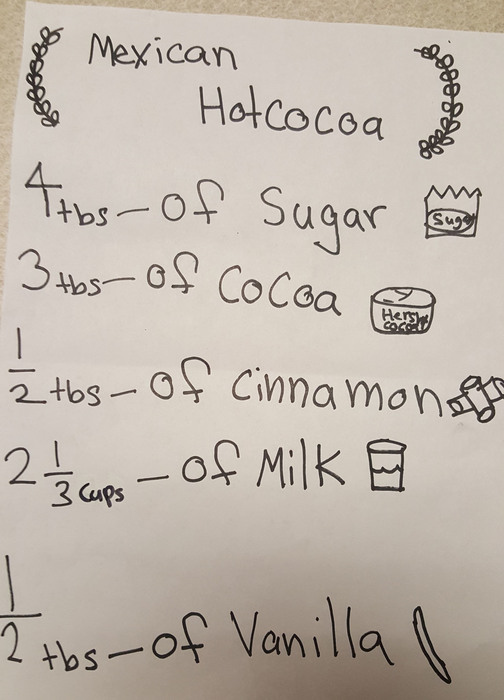 Mexican
Hotcocoa
4 tbs - of Sugar
Suga
3 tbs - of Cocoa
Hersh
cocoa
1/2 tbs - of Cinnamon
2 1/3 cups - of Milk
1/2 tbs - of Vanilla